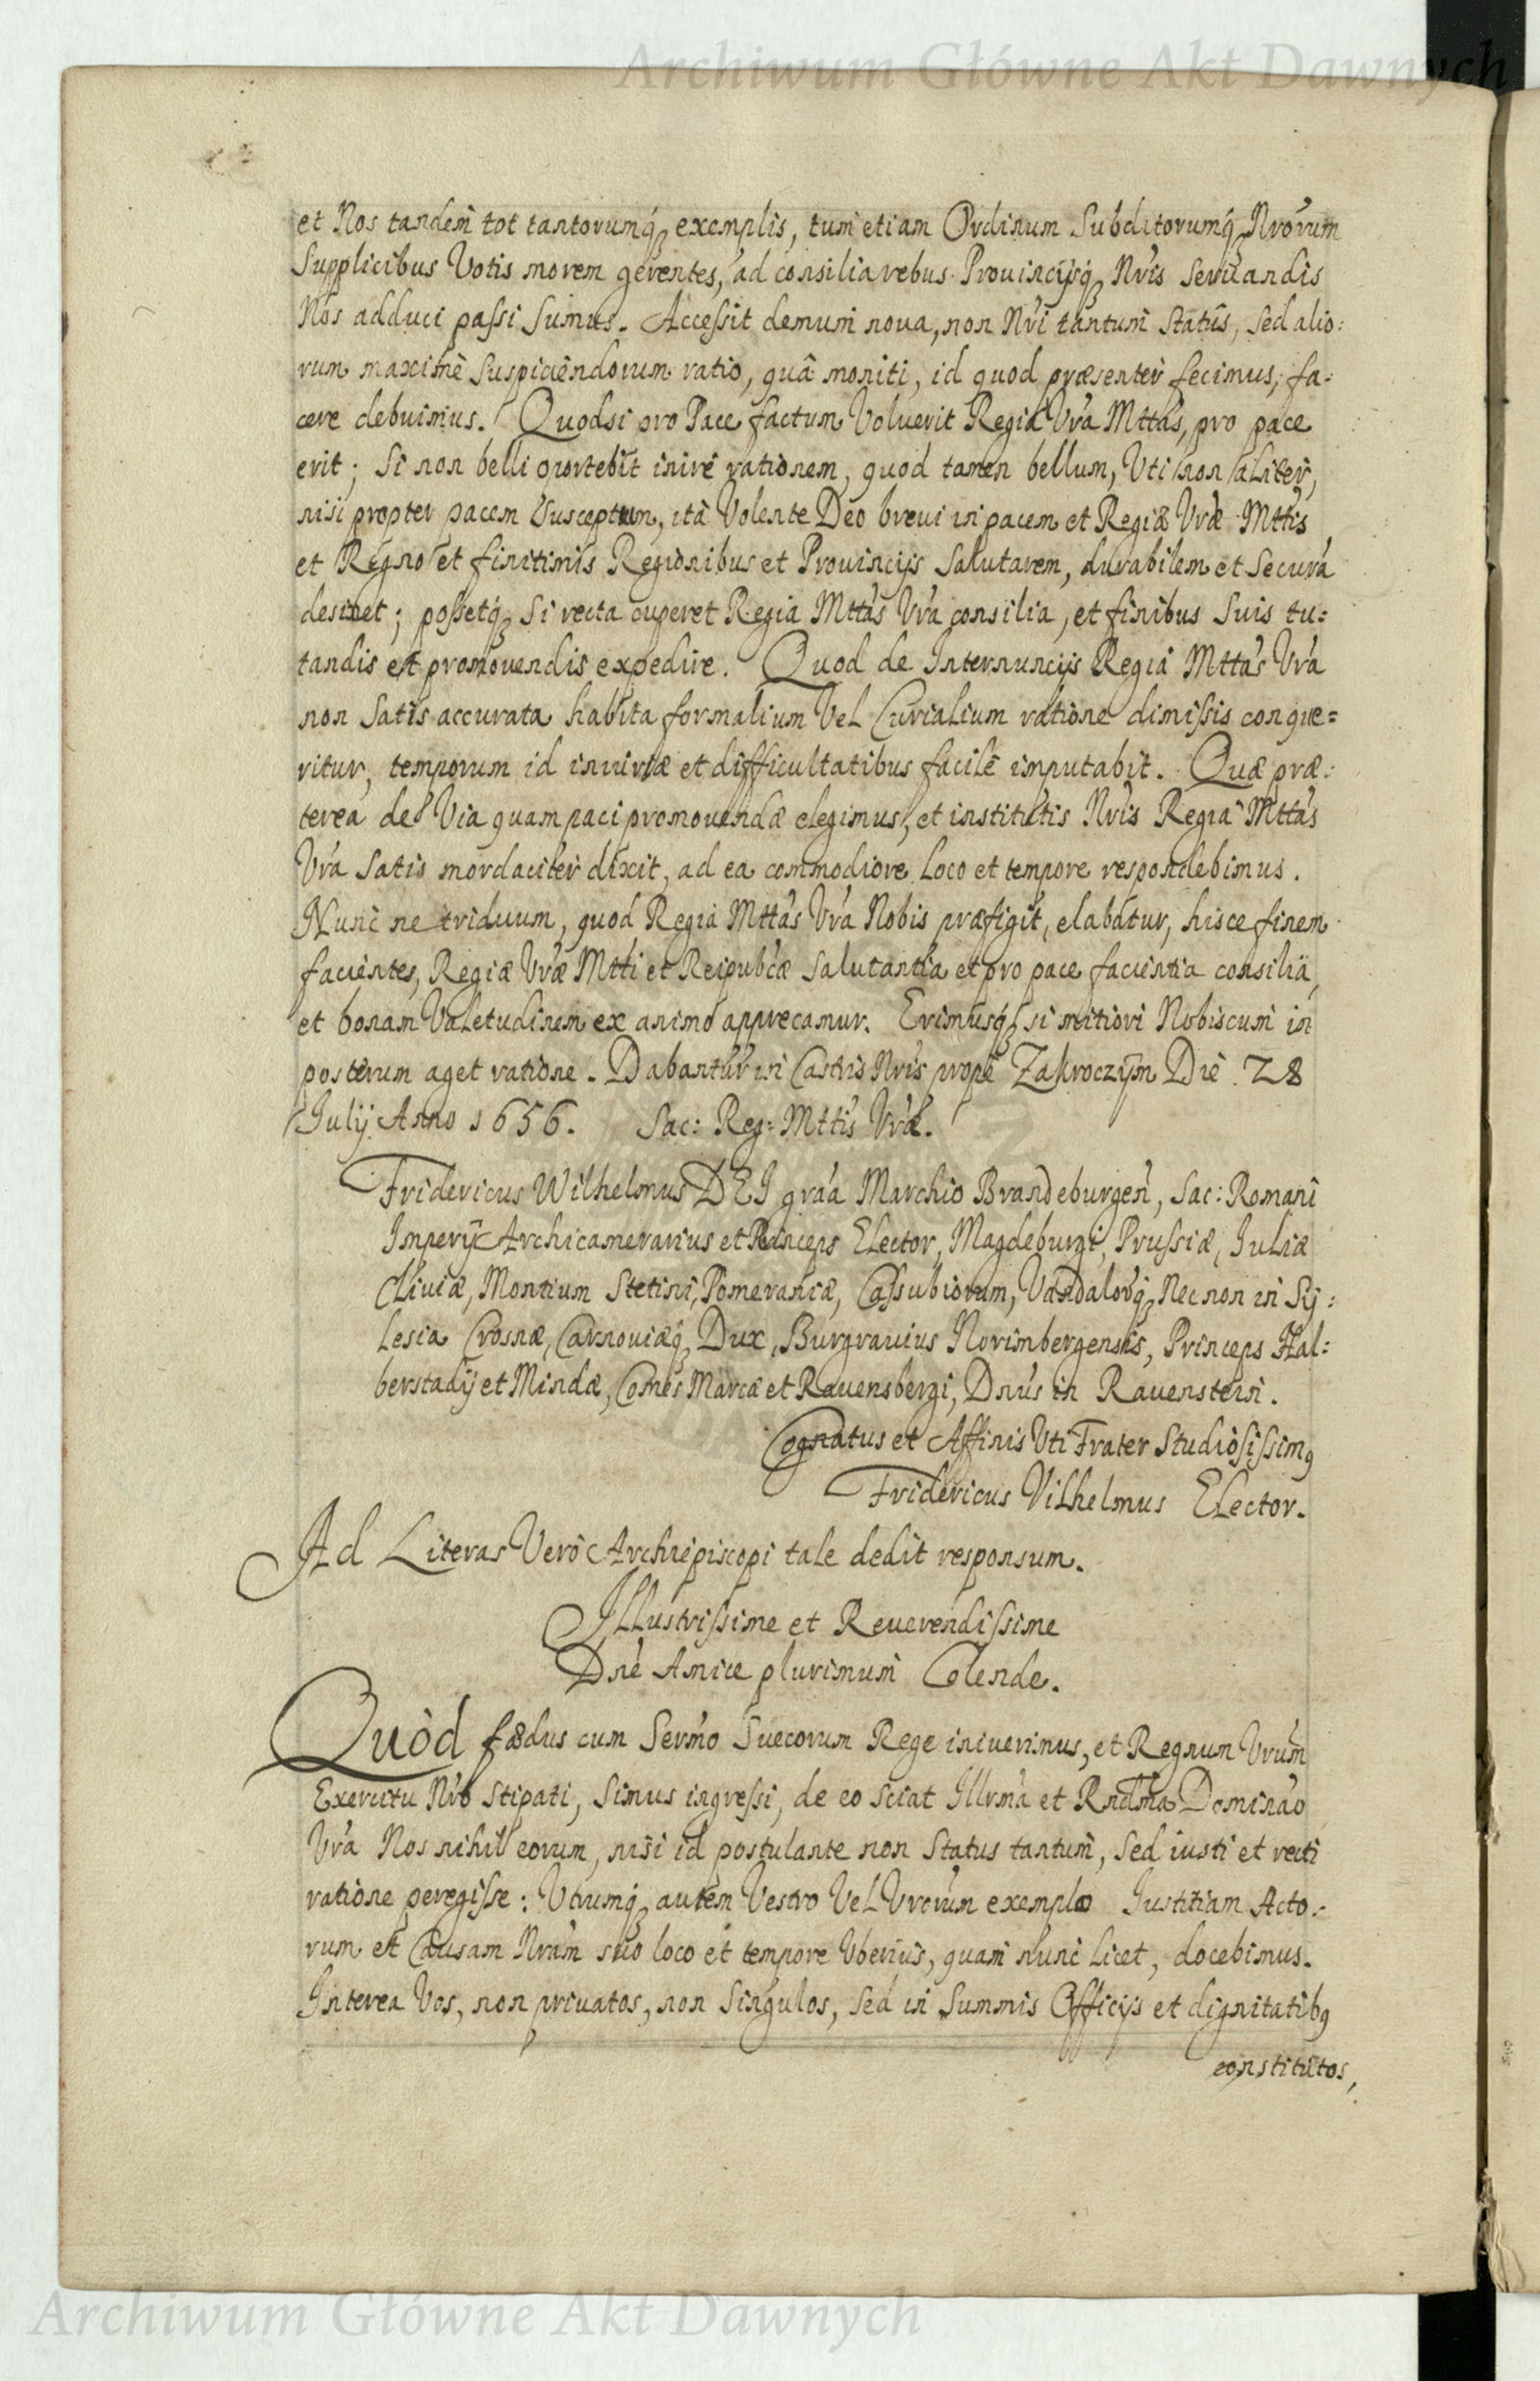 Archiwum Główne Akt Dawnych
et Nos tandem tot tantorumq́ꝫ exemplis, tum etiam Ordinum Subditorumq́ꝫ Nrorum
Supplicibus Votis morem gerentes, ad consilia rebus Prouincijsq́ꝫ Nris Seruandis
Nos adduci passi Sumus. Accessit demum noua, non Nri tantum Statûs, Sed alio:
rum maximè Suspiciendorum ratio, quâ moniti, id quod præsenter fecimus, fa:
cere debuimus. Quodsi pro Pace factum Voluerit Regia Vra Mttas, pro pace
erit; Si non belli oportebit inire rationem, quod tamen bellum, Vti non aliter,
nisi propter pacem Susceptum, ità Volente Deo breui in pacem et Regiæ Vræ Mttis
et Regno et finitimis Regionibus et Prouincijs Salutarem, durabilem et Securā
desinet; possetq́ꝫ Si recta cuperet Regia Mttas Vra consilia, et finibus Suis tu:
tandis et promouendis expedire. Quod de Internuncijs Regia Mttas Vra
non Satis accurata habita formalium Vel Curialium ratione dimissis conque=
ritur, temporum id iniuriæ et difficultatibus facilè imputabit. Quæ præ:
terea de Via quam paci promouendæ elegimus, et institutis Nris Regia Mttas
Vra Satis mordaciter dixit, ad ea commodiore Loco et tempore respondebimus.
Nunc ne triduum, quod Regia Mttas Vra Nobis præfigit, elabatur, hisce finem
facientes, Regiæ Vræ Mtti et Reipubcæ Salutantia et pro pace facientia consilia,
et bonam Valetudinem ex animo apprecamur. Erimusq́ꝫ si mitiori Nobiscum in
posterum aget ratione. Dabantur in Castris Nris propè Zakroczÿm Die 28
Julij Anno 1656. Sac: Reg: Mttis Vræ.
Fridericus Wilhelmus DEI graa Marchio Brandeburgen, Sac: Romani
Imperij Archicamerarius et Princeps Elector, Magdeburgi, Prussiæ, Juliæ
Cliuiæ, Montium Stetini, Pomeraniæ, Cassubiorum, Vandalorq́ꝫ Nec non in Sy:
Lesia Crosnæ, Carnouiæq́ꝫ Dux, Burgrauius Norimbergensis, Princeps Hal:
berstadij et Mindæ, Comes Marcæ et Rauensbergi, Dnus in Rauenstein.
Cognatus et Affinis Vti Frater Studiosissimꝰ
Fridericus Vilhelmus Elector.
Ad Literas Verò Archiepiscopi tale dedit responsum.
Illustrissime et Reuerendissime
Dne Amice plurimum Colende.
Quòd fædus cum Sermo Suecorum Rege iniuerimus, et Regnum Vrum
Exercitu Nro Stipati, Simus ingressi, de eo Sciat Illrma et Rndma Dominao
Vra Nos nihil eorum, nisi id postulante non Status tantum, Sed iusti et recti
ratione peregisse: Vtrumq́ꝫ autem Vestro Vel Vrorum exemplo Justitiam Acto:
rum et Causam Nram suo loco et tempore Vberius, quam nunc licet, docebimus.
Interea Vos, non priuatos, non Singulos, Sed in Summis Officijs et dignitatibꝰ
constitutos,
Archiwum Główne Akt Dawnych